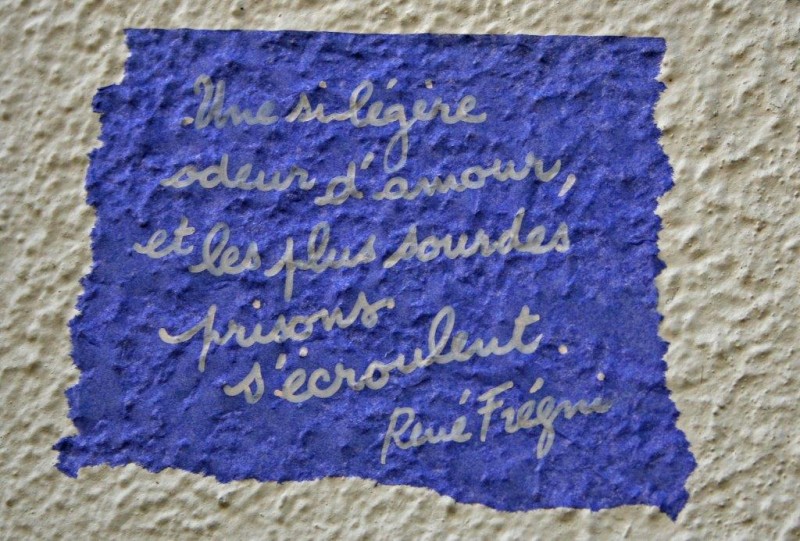 Une si légère
odeur d'amour,
et les plus sourdes
prisons
s'écroulent.
René Frégni